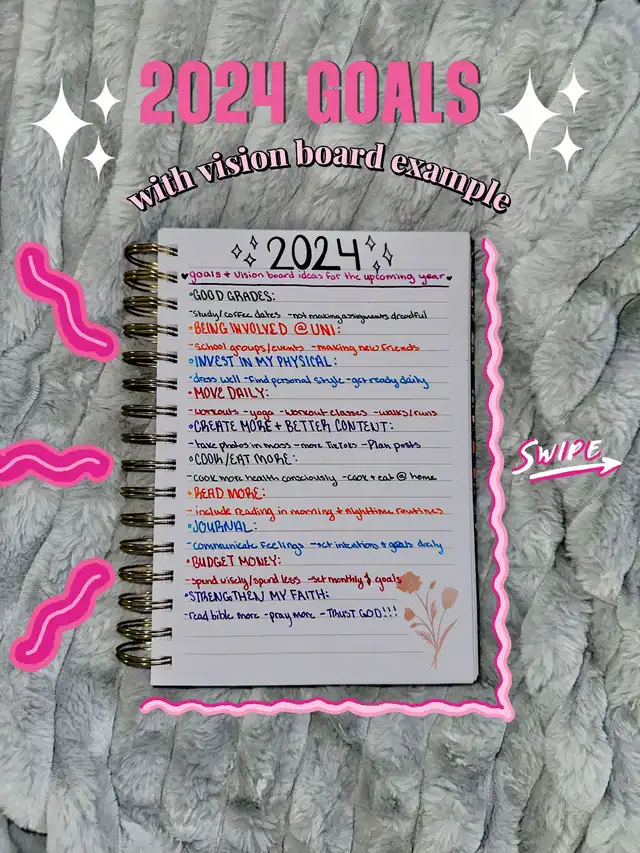 2024 GOALS
with vision board example
2024
goals + vision board ideas for the upcoming year
•GOOD GRADES:
-study/coffee dates -not making assignments dreadful
•BEING INVOLVED @ UNI:
-school groups/events -making new friends
•INVEST IN MY PHYSICAL:
-dress well -find personal style -get ready daily
•MOVE DAILY:
-workouts -yoga -workout classes -walks/runs
•CREATE MORE + BETTER CONTENT:
-take photos in mass -more TikToks -Plan posts
•COOK/EAT MORE:
-cook more health consciously -cook + eat @ home
•READ MORE:
-include reading in morning + nighttime routines
•JOURNAL:
-communicate feelings -set intentions + goals daily
•BUDGET MONEY:
-spend wisely/spend less -set monthly $ goals
•STRENGTHEN MY FAITH:
-read bible more -pray more -TRUST GOD!!!
SWIPE